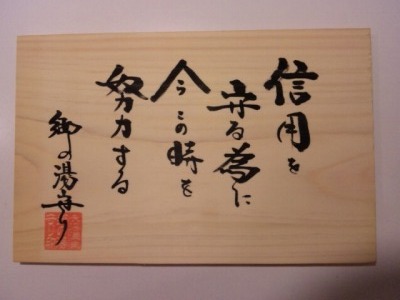 信用を
守る為に
今この時を
努力する
郷の湯守り